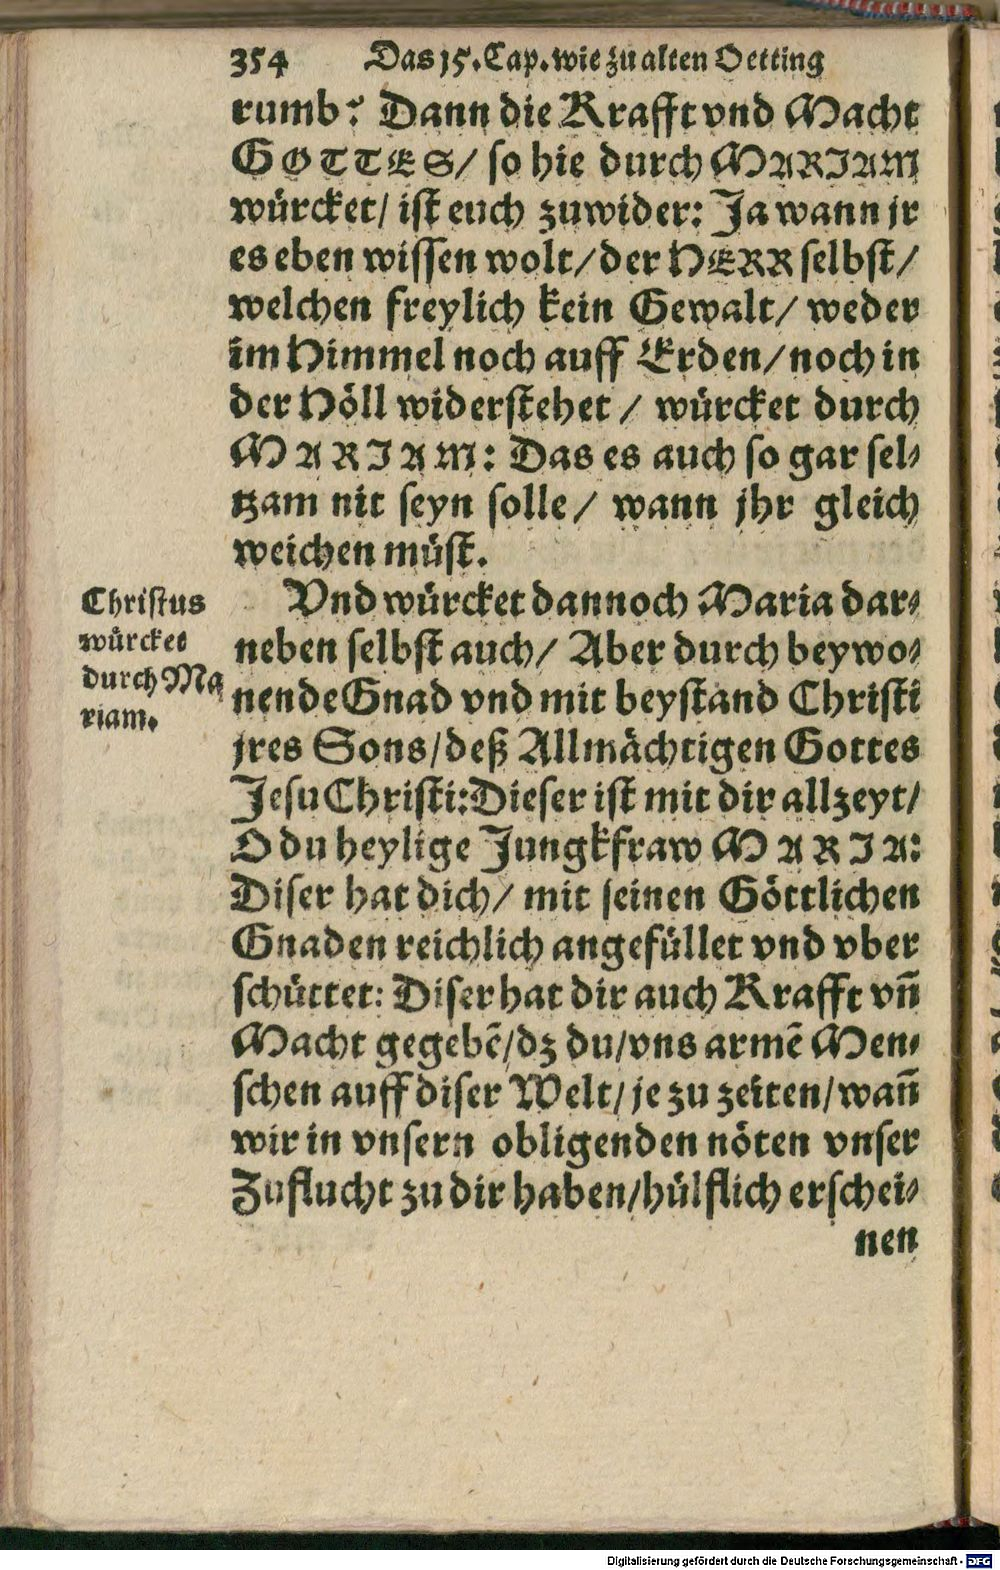 354 Das 15. Cap. wie zu alten Oetting
rumb? Dann die Krafft vnd Macht
GOTTES/ so hie durch MARIAM
würcket/ ist euch zuwider: Ja wann jr
es eben wissen wolt/ der HERR selbst/
welchen freylich kein Gewalt/ weder
im Himmel noch auff Erden/ noch in
der Höll widerstehet / würcket durch
MARIAM: Das es auch so gar sel-
tzam nit seyn solle/ wann jhr gleich
weichen müst.
Vnd würcket dannoch Maria dar-
neben selbst auch/ Aber durch beywo-
nende Gnad vnd mit beystand Christi
jres Sons/ deß Allmächtigen Gottes
Jesu Christi: Dieser ist mit dir allzeyt/
O du heylige Jungkfraw MARIA:
Diser hat dich/ mit seinen Göttlichen
Gnaden reichlich angefüllet vnd vber
schüttet: Diser hat dir auch Krafft vn̄
Macht gegebē/ dz du/ vns armē Men-
schen auff diser Welt/ je zu zeiten/ wan̄
wir in vnsern obligenden nöten vnser
Zuflucht zu dir haben/ hülflich erschei-
nen
Christus
würcket
durch Ma
riam.
Digitalisierung gefördert durch die Deutsche Forschungsgemeinschaft - DFG